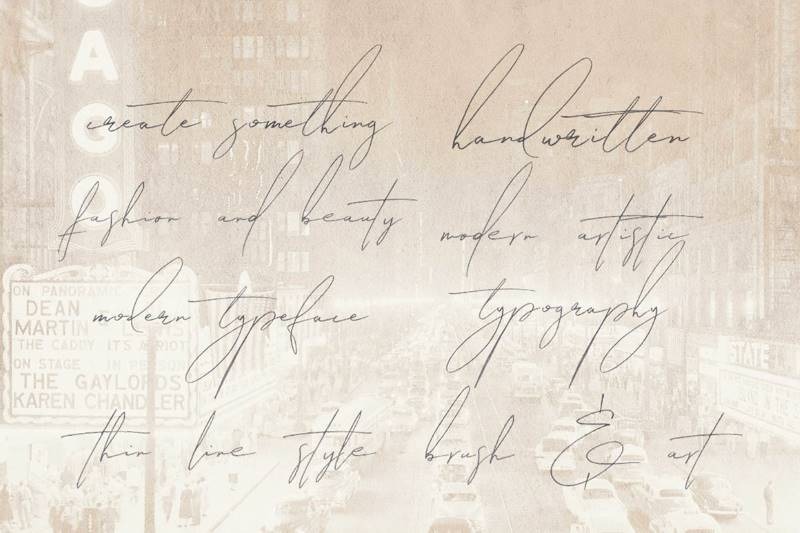 create something
handwritten
fashion and beauty
modern artistic
modern typeface
typography
thin line style
brush & art
AGO
ON PANORAMIC
DEAN
MARTIN
THE CADDY IT'S A RIOT
ON STAGE IN PERSON
THE GAYLORDS
KAREN CHANDLER
STATE